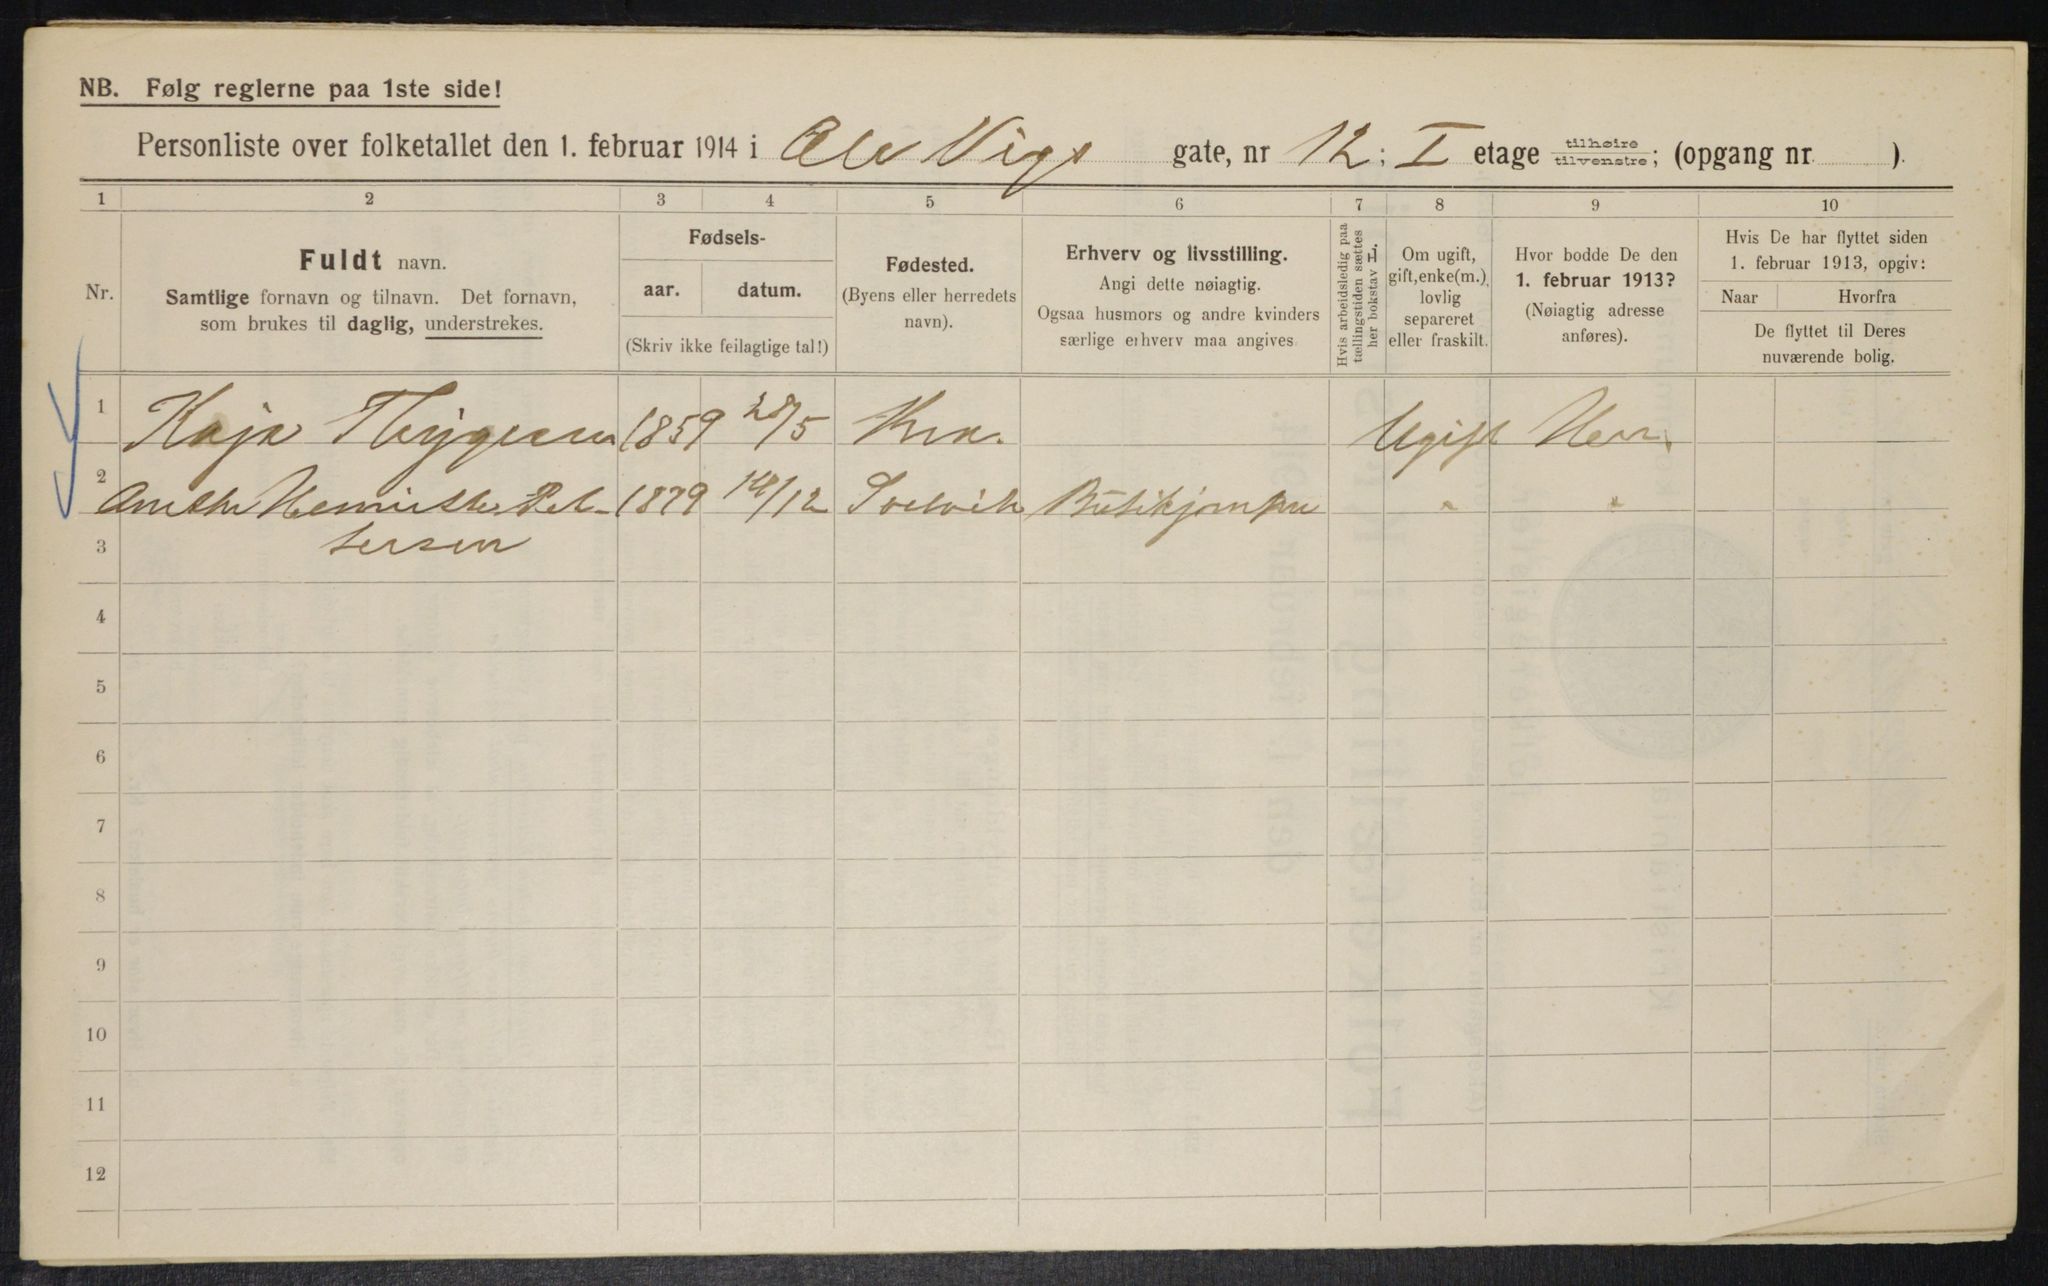 NB. Følg reglerne paa 1ste side!
Personliste over folketallet den 1. februar 1914 i Ole Vigs gate, nr 12; I etage tilhøire tilvenstre; (opgang nr. ).
1 2 3 4 5 6 7 8 9 10
Nr.
Fuldt navn.
Samtlige fornavn og tilnavn. Det fornavn,
som brukes til daglig, understrekes.
Fødsels-
aar. datum.
(Skriv ikke feilagtige tal!)
Fødested.
(Byens eller herredets
navn).
Erhverv og livsstilling.
Angi dette nøiagtig.
Ogsaa husmors og andre kvinders
særlige erhverv maa angives.
Hvis arbeidsledig paa
tællingstiden sættes
her bokstav L.
Om ugift,
gift, enke(m.),
lovlig
separeret
eller fraskilt.
Hvor bodde De den
1. februar 1913?
(Nøiagtig adresse
anføres).
Hvis De har flyttet siden
1. februar 1913, opgiv:
Naar Hvorfra
De flyttet til Deres
nuværende bolig.
1 Kaja Thygesen 1859 28/5 Kra. Ugift Her.
2 Pet- 1879 14/12 Svelvik " "
3 tersen
4
5
6
7
8
9
10
11
12